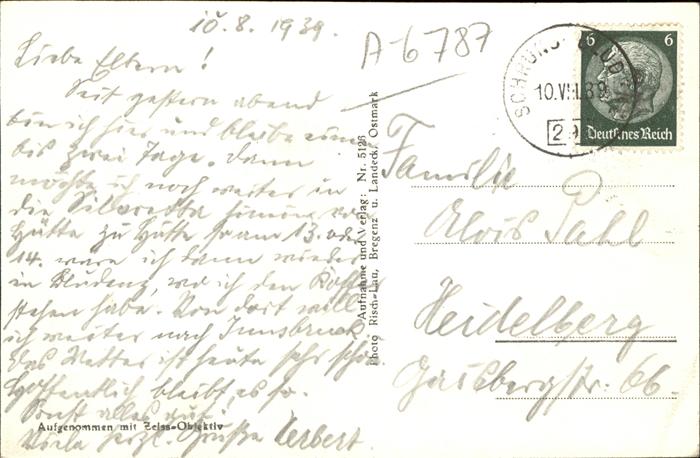 10.8.1939.
Liebe Eltern!
Seit gestern abend
bin ich hier und bleibe ein
bis zwei Tage. Dann
möchte ich noch weiter in
die Silvretta hinein von
Hütte zu Hütte so am 13. oder
14. wäre ich dann wieder
in Bludenz, wo ich den Koffer
stehen habe. Von dort will
ich weiter nach Innsbruck.
Das Wetter ist heute sehr schön
Hoffentlich bleibt es so.
Sonst alles gut.
Viele herzl. Grüße Herbert.
Aufgenommen mit Zeiss-Objektiv
A-6787
Aufnahme und Verlag: Nr. 5126
Photo Risch-Lau, Bregenz u. Landeck, Ostmark
SCHRUNS-BLUD
10.VIII.39
29
6 6
Deutsches Reich
Familie
Alois Pahl
Heidelberg
Gaisbergstr. 66.